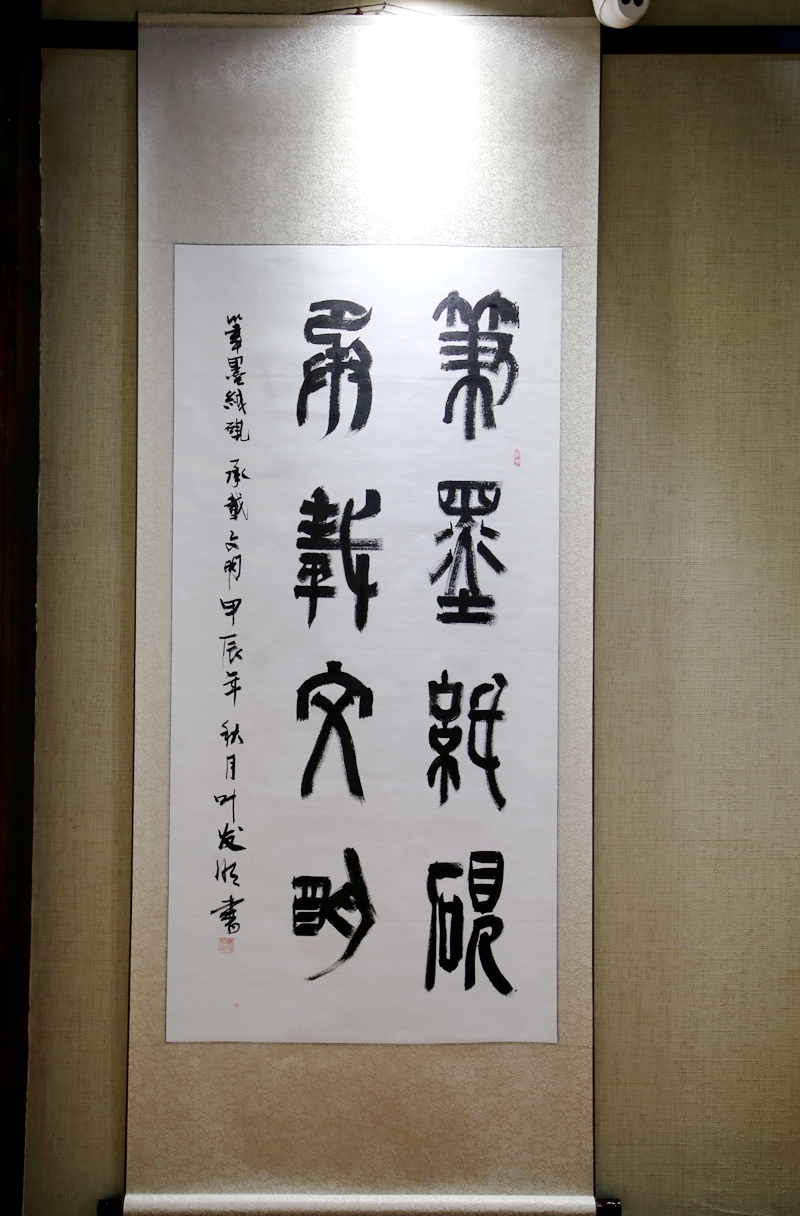 筆墨紙硯
承載文明
筆墨紙硯 承載文明 甲辰年 秋月 叶发 書